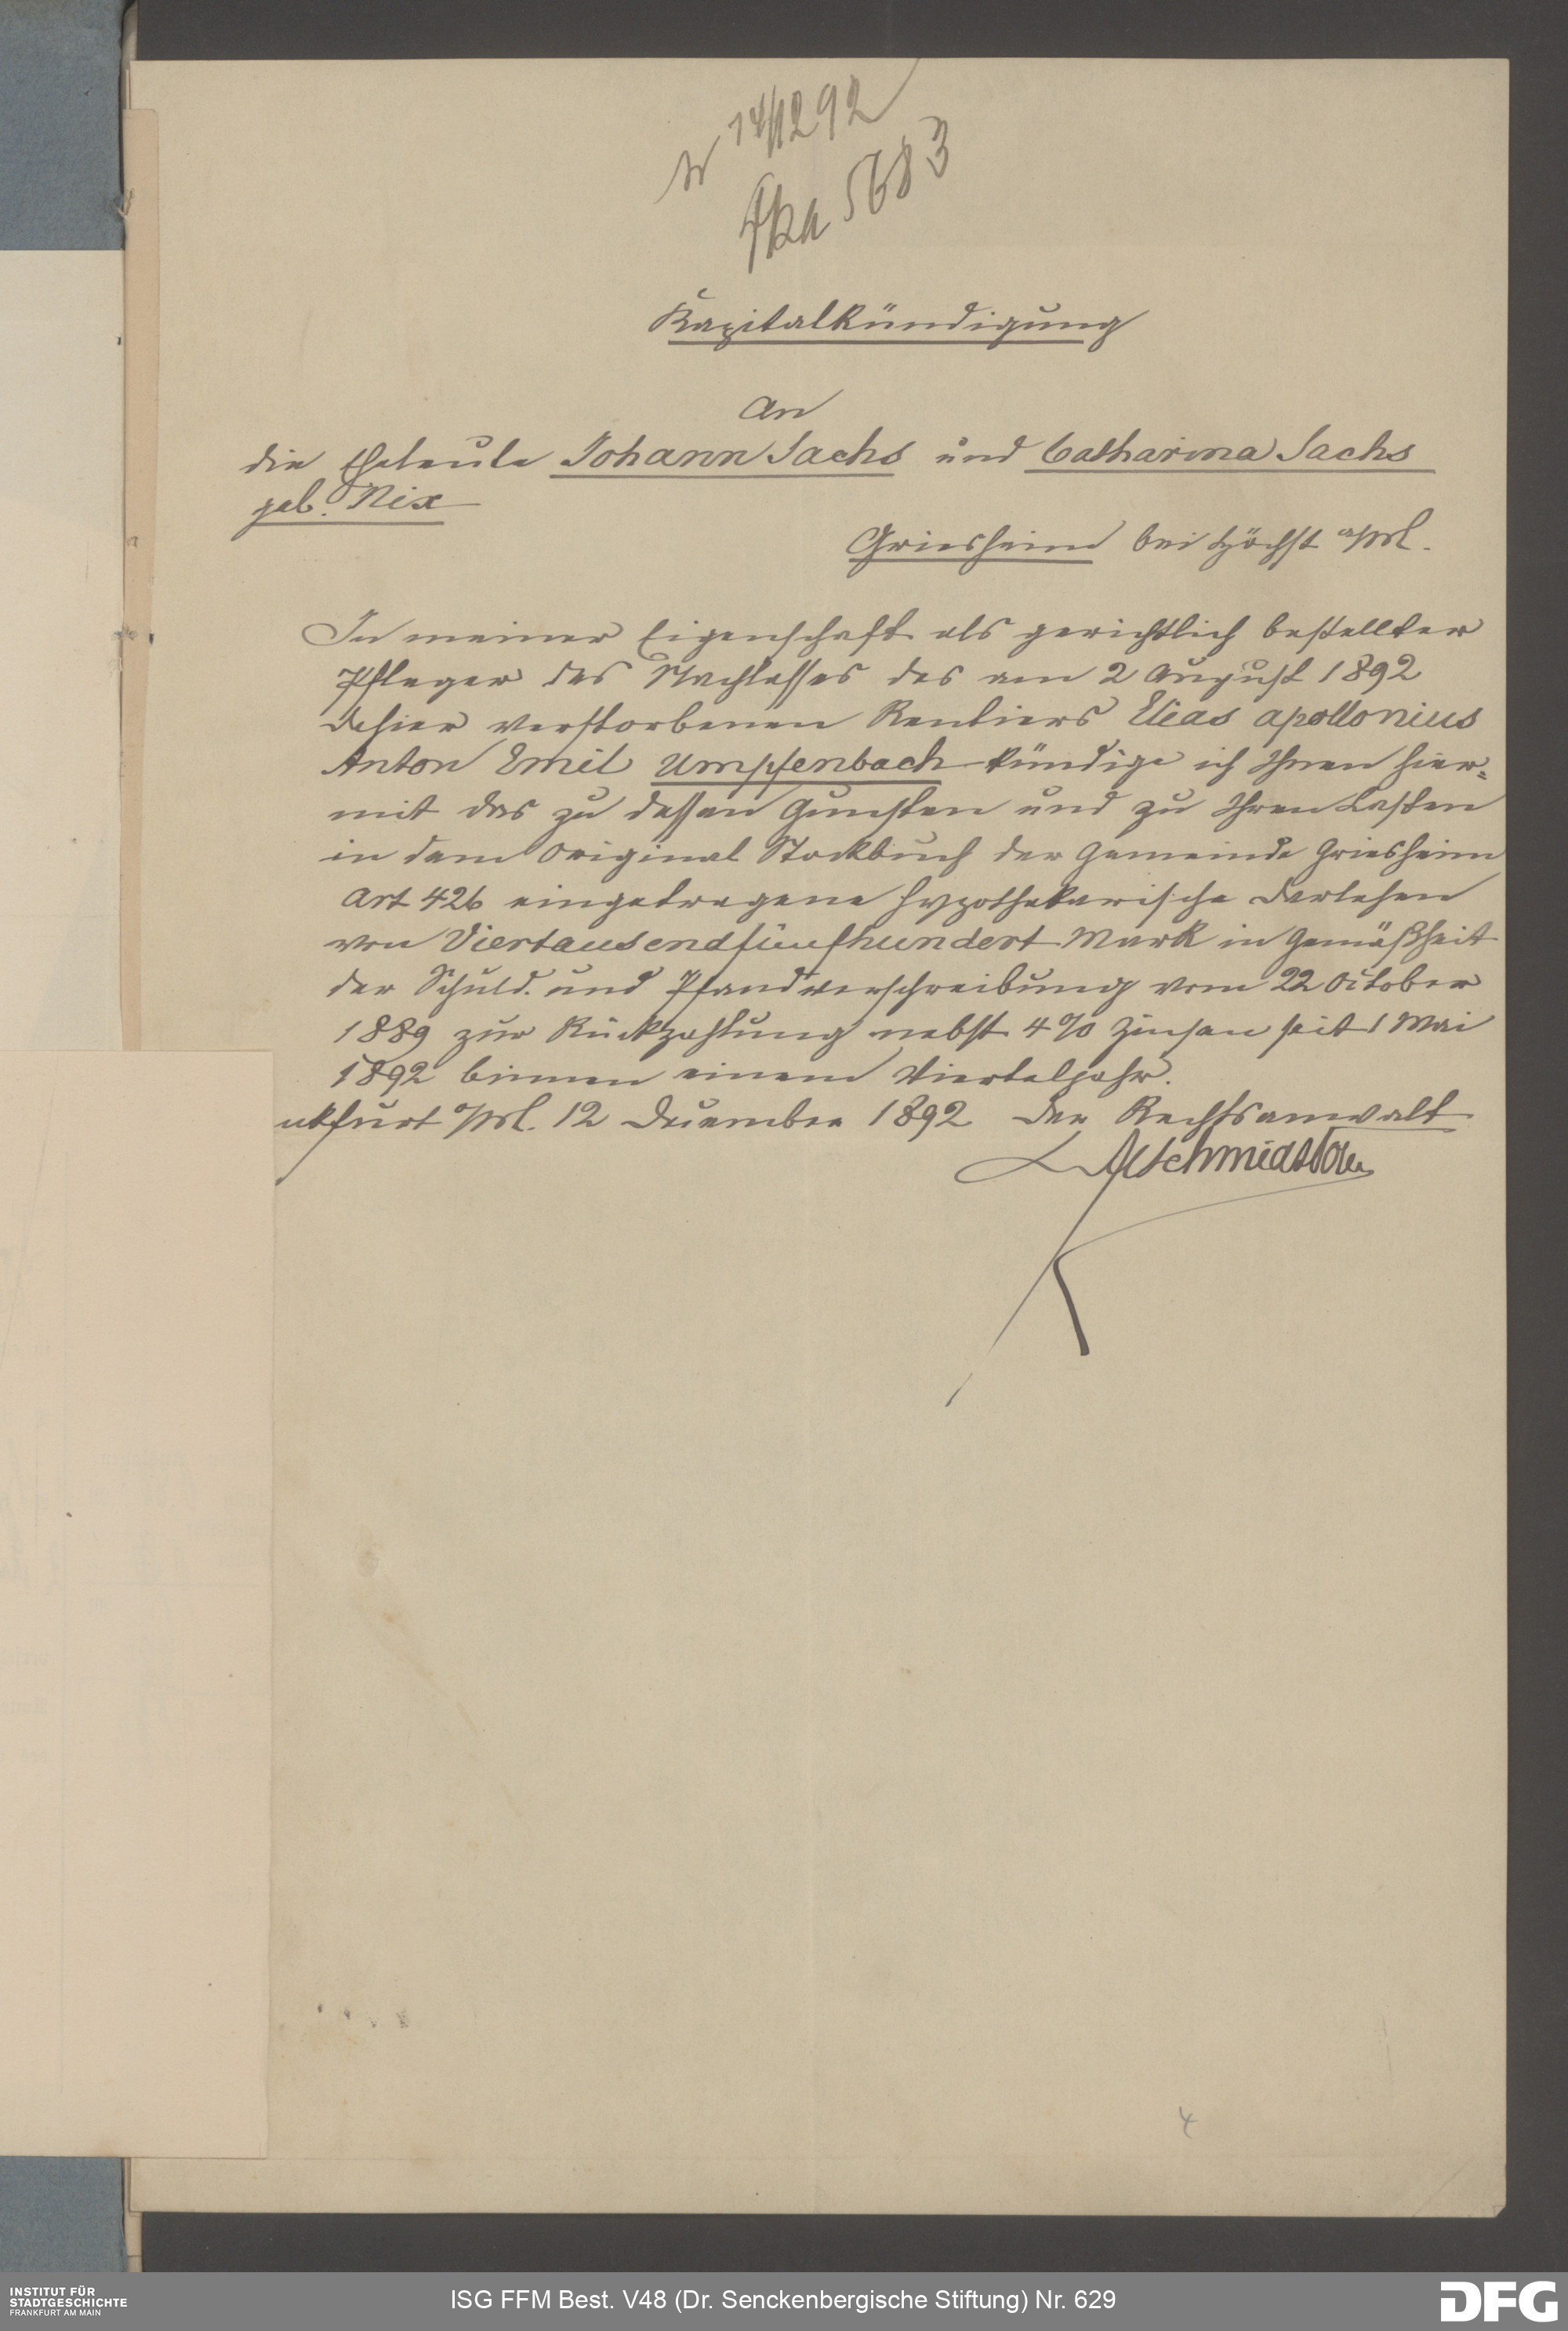 14/12 92
5683
Kapitalkündigung
An
die Eheleute Johann Sachs und Catharina Sachs
geb. Nix
Griesheim bei Höchst a/M.
In meiner Eigenschaft als gerichtlich bestellter
Pfleger des Nachlasses des am 2 August 1892
dahier verstorbenen Rentiers Elias Apollonius
Anton Emil Umpfenbach kündige ich Ihnen hier-
mit das zu dessen Gunsten und zu Ihren Lasten
in dem Original Stockbuch der Gemeinde Griesheim
Art 426 eingetragene hypothekarische Darlehen
von Viertausendfünfhundert Mark in Gemäßheit
der Schuld- und Pfandverschreibung vom 22 October
1889 zur Rückzahlung nebst 4% Zinsen seit 1 Mai
1892 binnen einem Vierteljahr.
nkfurt a/M. 12 December 1892 Der Rechtsanwalt
4
INSTITUT FÜR
STADTGESCHICHTE
FRANKFURT AM MAIN
ISG FFM Best. V48 (Dr. Senckenbergische Stiftung) Nr. 629
DFG